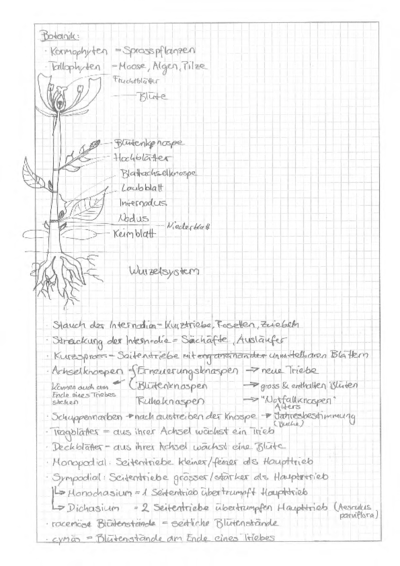 Botanik:
· Kormophyten = Sprosspflanzen
· Tallophyten = Moose, Algen, Pilze
Fruchtblätter
Blüte
Blütenknospe
Hochblätter
Blattachselknospe
Laubblatt
Internodus
Nodus
Niederblatt
Keimblatt
Wurzelsystem
· Stauch des Internodien = Kurztriebe, Rosetten, Zwiebeln
· Streckung der Internodie = Schäfte, Ausläufer
· Kurzspross = Seitentriebe mit Blättern
· Achselknospen Erneuerungsknospen → neue Triebe
Könnte auch am Ende eines Triebes stehen
Blütenknospen → gross & enthalten Blüten
Ruheknospen → "Notfallknospen"
· Schuppennarben → nach austreiben der Knospe → Alters Jahresbestimmung (Buche)
· Tragblätter = aus ihrer Achsel wächst ein Trieb
· Deckblätter = aus ihrer Achsel wächst eine Blüte
· Monopodial: Seitentriebe kleiner/feiner als Haupttrieb
· Sympodial: Seitentriebe grösser/stärker als Haupttrieb
↳ Monochasium = 1 Seitentrieb übertrumpft Haupttrieb
↳ Dichasium = 2 Seitentriebe übertrumpfen Haupttrieb (Aesculus parviflora)
· racemöse Blütenstände = seitliche Blütenstände
· cymös = Blütenstände am Ende eines Triebes